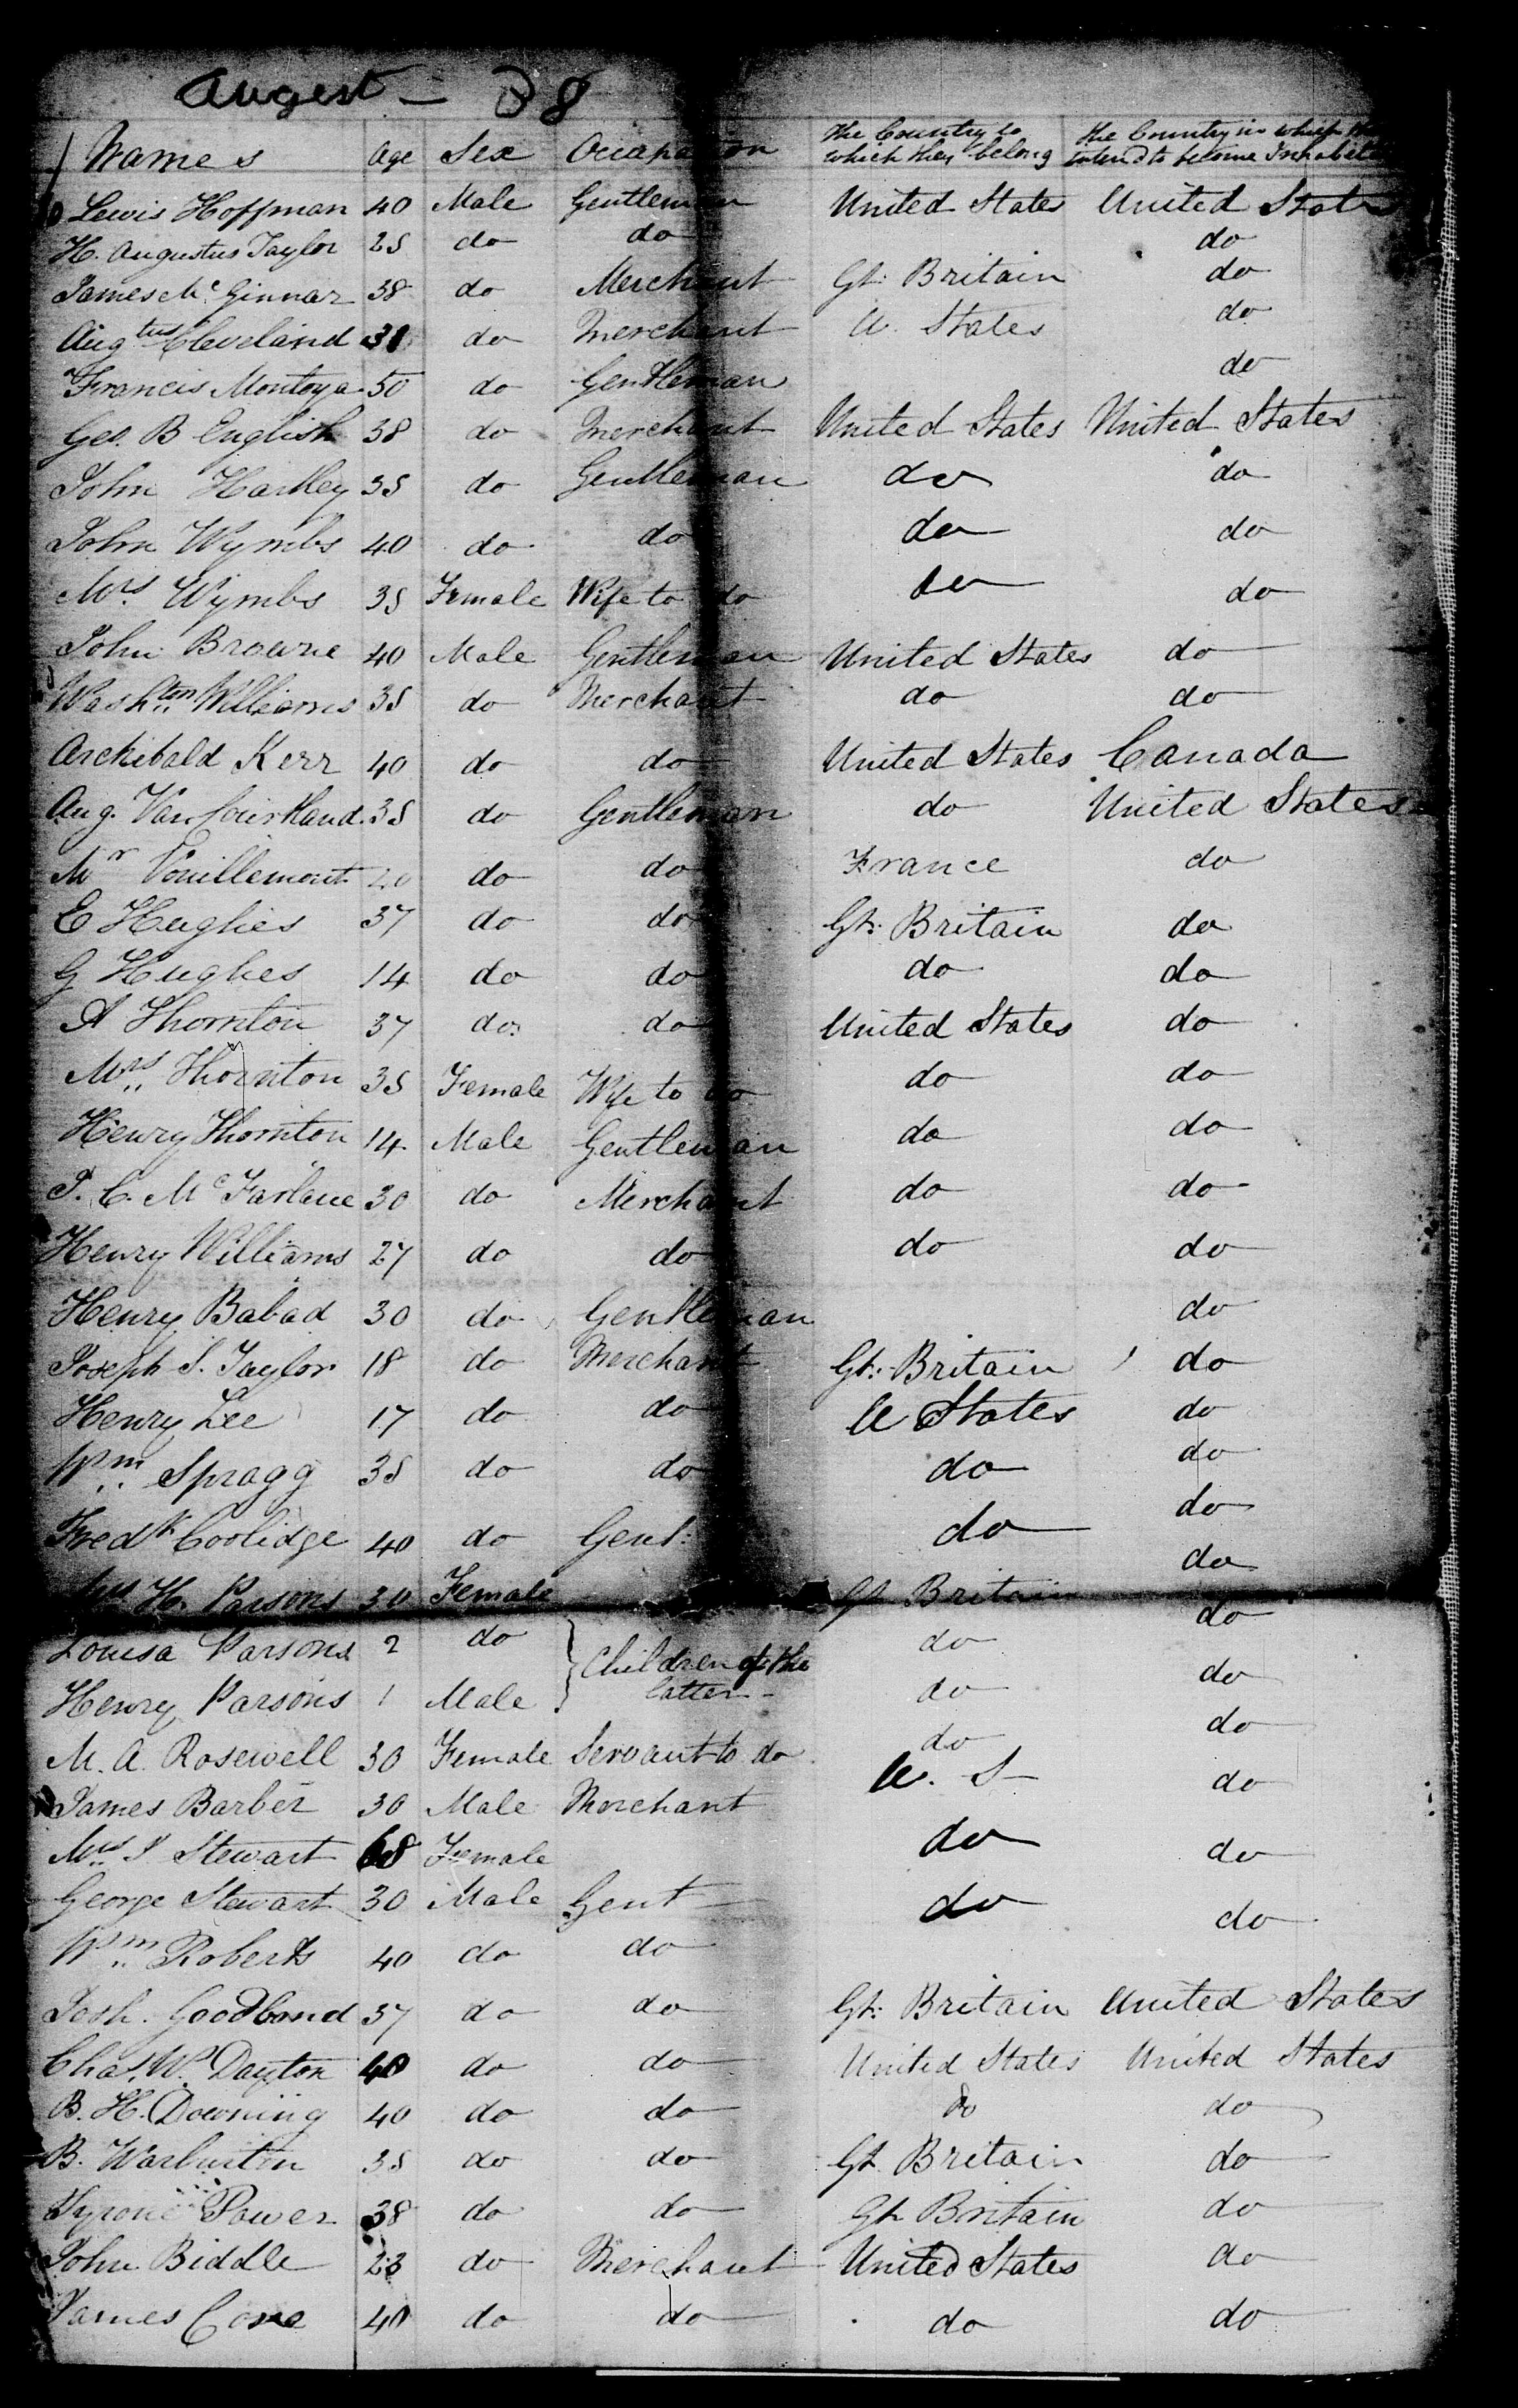 August - 28
Names Age Sex Occupation The Country to which they belong the Country in which intend to become Inhabitants
Lewis Hoffman 40 Male Gentleman United States United States
H. Augustus Taylor 25 do do do
James Mc Ginnar 38 do Merchant Gt. Britain do
Augtus Cleveland 38 do Merchant U. States do
Francis Montoya 50 do Gentleman do
Geo. B English 38 do Merchant United States United States
John Hartley 35 do Gentleman do do
John Wymbs 40 do do do do
Mrs. Wymbs 35 Female Wife to do do do
John Browne 40 Male Gentleman United States do
Washton Williams 35 do Merchant do do
Archibald Kerr 40 do do United States Canada
Aug. Van Courtland 35 do Gentleman do United States
Mr Vouillemont 20 do do France do
E Hughes 37 do do Gt: Britain do
G Hughes 14 do do do do
A Thornton 37 do do United States do
Mrs Thornton 35 Female Wife to do do do
Henry Thornton 14 Male Gentleman do do
T. C. McFarlane 30 do Merchant do do
Henry Williams 27 do do do do
Henry Babad 30 do Gentleman do
Joseph S. Taylor 18 do Merchant Gt: Britain do
Henry Lee 17 do do U States do
Wm Spragg 35 do do do do
Fredk Coolidge 40 do Gent: do do
Mrs H. Parsons 30 Female Gt Britain do
Louisa Parsons 2 do Children of the latter do do
Henry Parsons 1 Male do do
M. A. Rosewell 30 Female Servant to do do do
James Barber 30 Male Merchant U. S do
Mrs J Stewart 68 Female do do
George Stewart 30 Male Gent do do
Wm Roberts 40 do do
Josh. Goodbond 37 do do Gt: Britain United States
Chas. W. Dayton 40 do do United States United States
B. H. Downing 40 do do do do
B. Warburton 35 do do Gt Britain do
Tyrone Power 38 do do Gt Britain do
John Biddle 23 do Merchant United States do
James Cone 40 do do do do